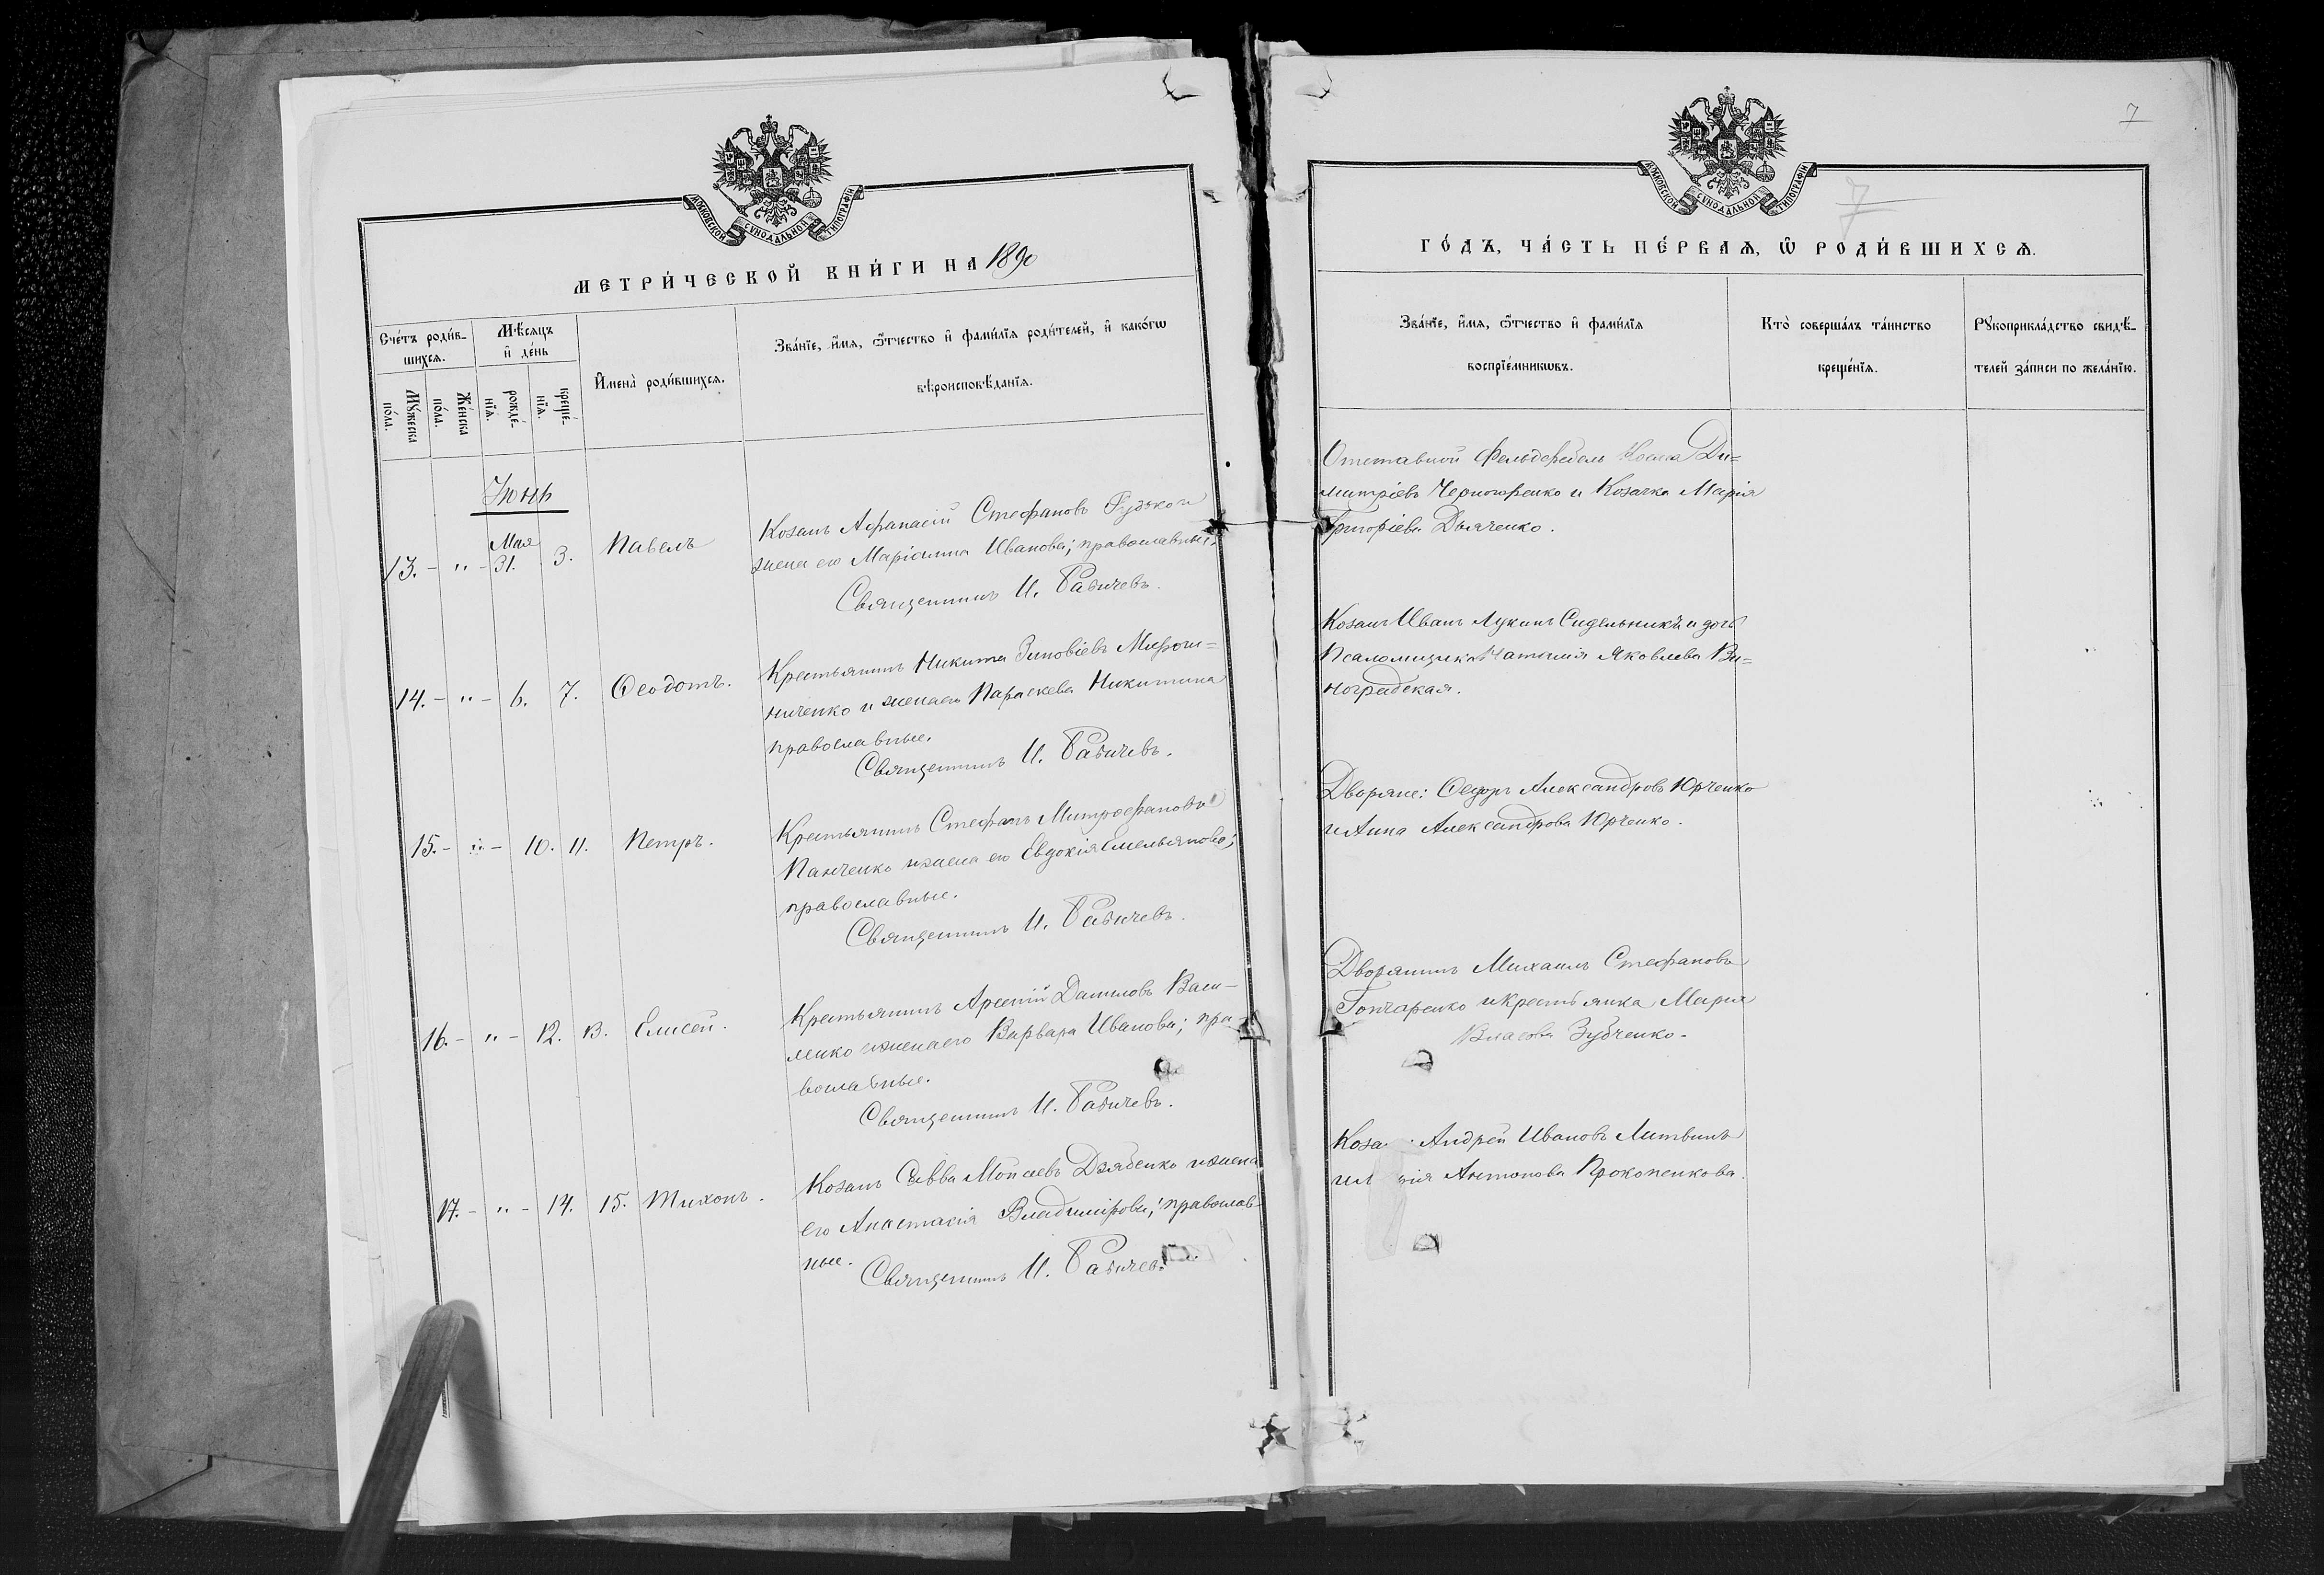 МОСКОВСКОЙ СѴНОДАЛЬНОЙ ТИПОГРАФІИ
МЕТРИ́ЧЕСКОЙ КНИ́ГИ НА 1890
Сче́тъ роди́в-
шихсѧ.
Мѣ́сяцъ
и҆ де́нь
И҆мена̀ роди́вшихсѧ.
Зва́нїе, и҆́мѧ, ѻ҆́тчество и҆ фами́лїѧ роди́телей, и҆ како́гѡ
вѣроисповѣ́данїѧ.
Мꙋ́жеска
по́ла.
Же́нска
по́ла.
рожде́-
нїѧ.
креще́-
нїѧ.
Іюнь
13. - " - Мая 31. 3. Павелъ
Козакъ Афанасій Стефановъ
жена его Маріамна Иванова; православные.
Священникъ И. Бабичевъ.
14. - " - 6. 7. Ѳеодотъ.
Крестьянинъ Никита Зиновіевъ Мирош=
ниченко и жена его Параскева Никитина
православные.
Священникъ И. Бабичевъ.
15. - " - 10. 11. Петръ.
Крестьянинъ Стефанъ Митрофановъ
Панченко и жена его Евдокія Емельянова;
православные.
Священникъ И. Бабичевъ.
16. - " - 12. 13. Елисей.
Крестьянинъ Арсеній Даниловъ Васи-
ленко и жена его Варвара Иванова; пра-
вославные.
Священникъ И. Бабичевъ.
17. - " - 14. 15. Тихонъ.
Козакъ Савва Моисеевъ Дзябенко и жена
его Анастасія Владимірова; православ-
ные.
Священникъ И. Бабичевъ.
7
МОСКОВСКОЙ СѴНОДАЛЬНОЙ ТИПОГРАФІИ
7
ГО́ДЪ, ЧА́СТЬ ПЕ́РВАѦ, Ѡ҆ РОДИ́ВШИХСѦ.
Зва́нїе, и҆́мѧ, ѻ҆́тчество и҆ фами́лїѧ
воспрїе́мникѡвъ.
Кто̀ соверша́лъ та́инство
креще́нїѧ.
Рꙋкоприкла́дство свидѣ́-
телей за́писи по жела́нїю.
Отставной Фельдфебель Ди=
митріевъ Черногоренко и Козачка Марія
Григоріева Дьяченко.
Козакъ Иванъ Лукинъ Сидельникъ и дочь
Псаломщика Наталія Яковлева Ви=
ноградская.
Дворяне: Ѳедоръ Александровъ Юрченко
и Анна Александрова Юрченко.
Дворянинъ Михаилъ Стефановъ
Гончаренко и крестьянка Марія
Власова Зубченко-
Коза Андрей Ивановъ Литвинъ
Антонова Прокопенкова.